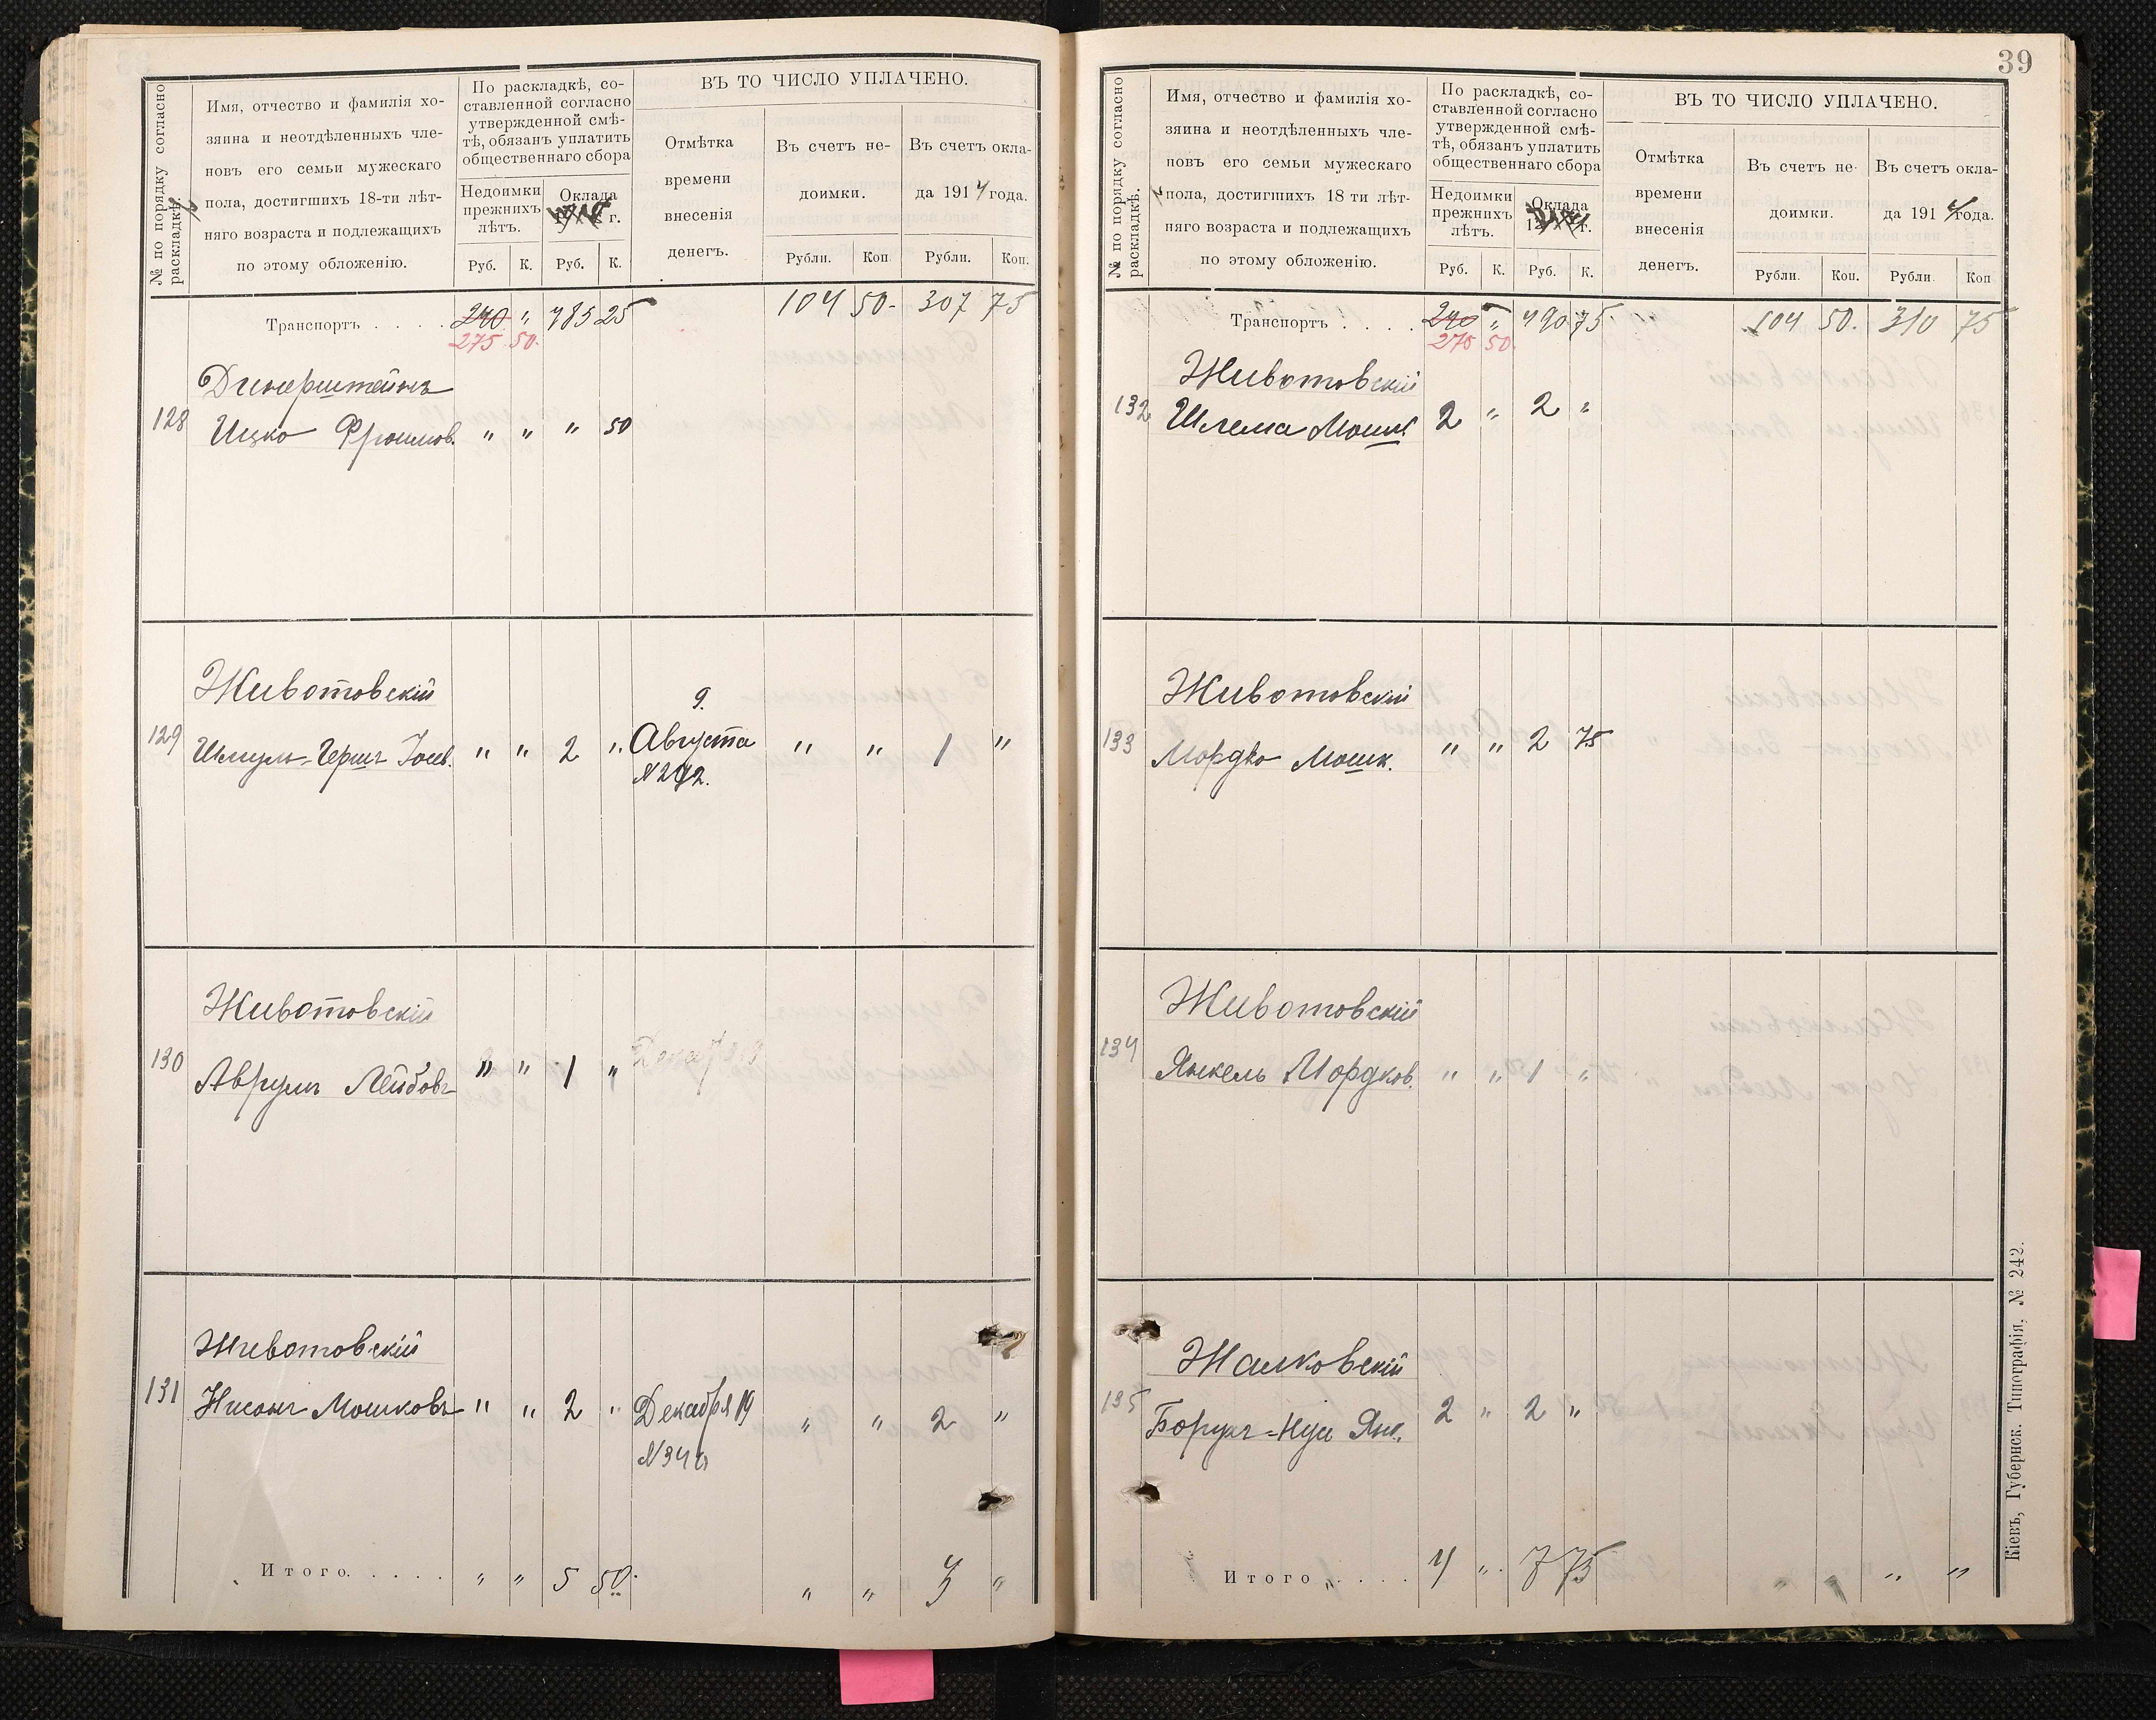 № по порядку согласно
раскладкѣ.
Имя, отчество и фамилія хо-
зяина и неотдѣленныхъ чле-
новъ его семьи мужескаго
пола, достигшихъ 18-ти лѣт-
няго возраста и подлежащихъ
по этому обложенію.
По раскладкѣ, со-
ставленной согласно
утвержденной смѣ-
тѣ, обязанъ уплатить
общественнаго сбора
Недоимки
прежнихъ
лѣтъ.
Оклада
г.
Руб. К. Руб. К.
ВЪ ТО ЧИСЛО УПЛАЧЕНО.
Отмѣтка
времени
внесенія
денегъ.
Въ счетъ не-
доимки.
Въ счетъ окла-
да 1914 года.
Рубли. Коп Рубли. Коп.
Транспортъ . . . . 240 " 485 25 104 50 - 307 75
275 50.
Динерштейнъ
128 Ицко Фроимов. " " " 50
Животовскій
129 Шмуль-Гершъ Іосев. " " 2 " 9. Августа " " 1 "
№
Животовскій
130 Аврумъ Лейбовъ " " 1 "
Животовскій
131 Нисонъ Мошковъ " " 2 " Декабря 19 " " 2 "
№
Итого. . . . . " " 5 50. " " 3 "
39
№ по порядку согласно
раскладкѣ.
Имя, отчество и фамилія хо-
зяина и неотдѣленныхъ чле-
новъ его семьи мужескаго
пола, достигшихъ 18 ти лѣт-
няго возраста и подлежащихъ
по этому обложенію.
По раскладкѣ, со-
ставленной согласно
утвержденной смѣ-
тѣ, обязанъ уплатить
общественнаго сбора
Недоимки
прежнихъ
лѣтъ.
Оклада
г.
Руб. К. Руб. К.
ВЪ ТО ЧИСЛО УПЛАЧЕНО.
Отмѣтка
времени
внесенія
денегъ.
Въ счетъ не-
доимки.
Въ счетъ окла-
да 1914 года.
Рубли. Коп. Рубли. Коп
Транспортъ . . . . 240 " 490 75 104 50. 310 75
275 50.
Животовскій
132 Шлема Мошк. 2 " 2 "
Животовскій
133 Мордко Мошк. " " 2 75
Животовскій
134 Янкель Мордков. " " 1 "
Жалковскій
135 Борухъ-Нус Янк. 2 " 2 "
Итого . . . . 4 " 7 75 " " " "
Кіевъ, Губернск. Типографія, № 242.